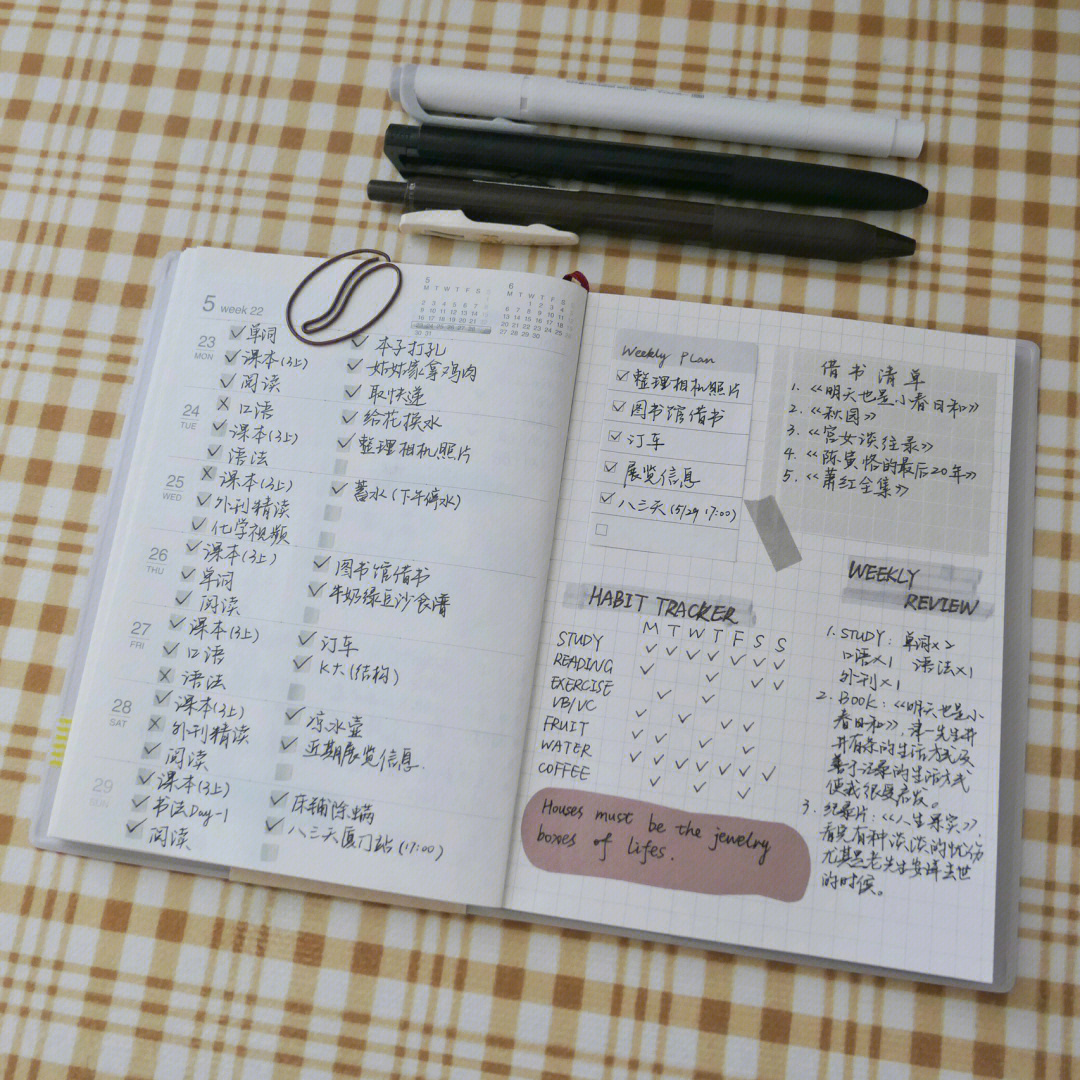 5 week 22
5
M T W T F S S
2 3 4 5 6 7 8
9 10 11 12 13 14 15
16 17 18 19 20 21 22
23 24 25 26 27 28 29
30 31
6
M T W T F S S
1 2 3 4 5
6 7 8 9 10 11 12
13 14 15 16 17 18 19
20 21 22 23 24 25 26
27 28 29 30
23 MON
✓单词
✓课本(3上)
✓阅读
✓本子打孔
✓姑姑家拿鸡肉
✓取快递
24 TUE
×口语
✓课本(3上)
✓语法
✓给花换水
✓整理相机照片
25 WED
×课本(3上)
✓外刊精读
✓化学视频
✓蓄水(下午停水)
26 THU
✓课本(3上)
✓单词
✓阅读
✓图书馆借书
✓牛奶绿豆沙食谱
27 FRI
✓课本(3上)
✓口语
×语法
✓订车
✓K大(结构)
28 SAT
✓课本(3上)
×外刊精读
✓阅读
✓凉水壶
✓近期展览信息.
29 SUN
✓课本(3上)
✓书法Day-1
✓阅读
✓床铺除螨
✓八三夭厦门站(17:00)
Weekly Plan
✓整理相机照片
✓图书馆借书
✓订车
✓展览信息
✓八三夭(5/29 17:00)
借书清单
1.《明天也是小春日和》
2.《秋园》
3.《宫女谈往录》
4.《陈寅恪的最后20年》
5.《萧红全集》
HABIT TRACKER
M T W T F S S
STUDY
READING
EXERCISE
VB/VC
FRUIT
WATER
COFFEE
Houses must be the jewelry
boxes of lifes.
WEEKLY
REVIEW
1. STUDY: 单词×2
口语×1 语法×1
外刊×1
2. BOOK:《明天也是小
春日和》,津一先生井
井有条的生活方式及
基于记录的生活方式
使我很受启发。
3. 纪录片:《人生果实》,
看完有种淡淡的忧伤
尤其是老先生安详去世
的时候。